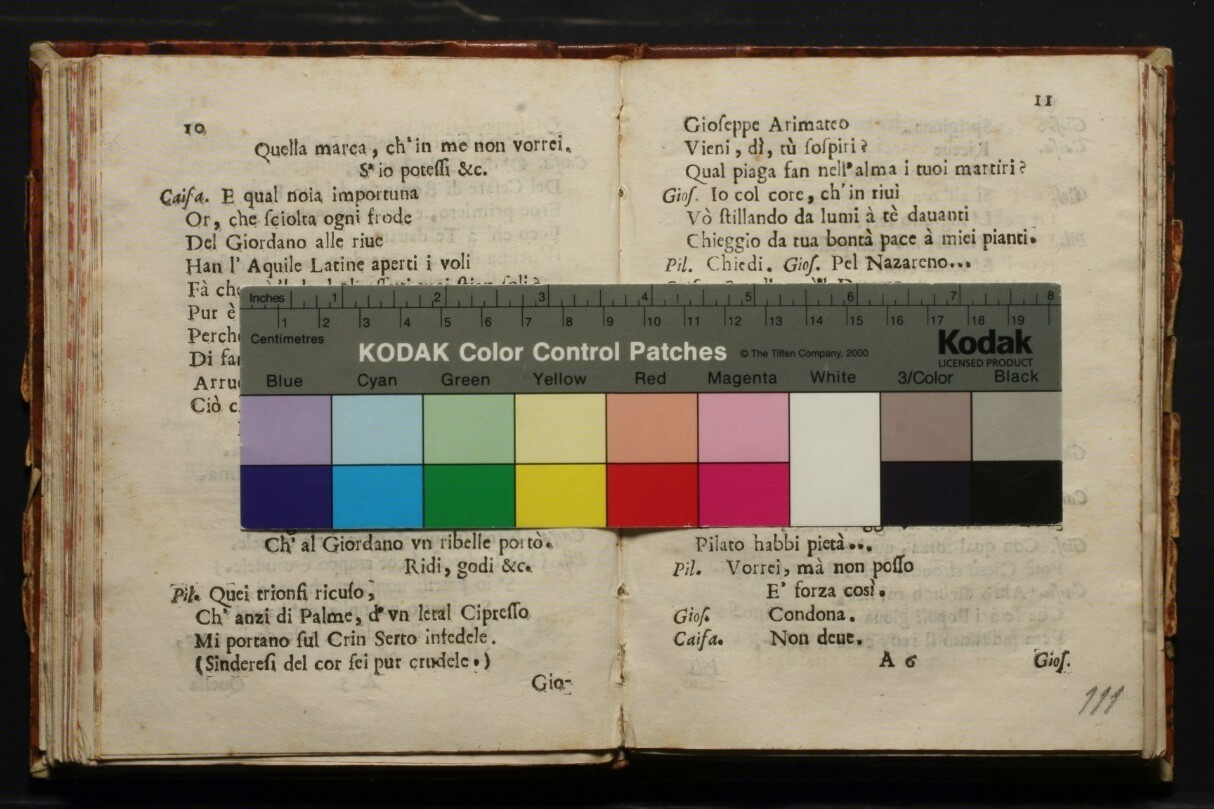 10
Quella marca, ch' in me non vorrei.
S' io potessi &c.
Caifa. E qual noia importuna
Or, che sciolta ogni frode
Del Giordano alle riue
Han l' Aquile Latine aperti i voli
Fà
Pur è
Perche
Di
Ciò
Ch' al Giordano vn ribelle portò.
Ridi, godi &c.
Pil. Quei trionfi ricuso,
Ch' anzi di Palme, d' vn letal Cipresso
Mi portano sul Crin Serto infedele.
(Sinderesi del cor sei pur crudele.)
Gio-
11
Gioseppe Arimateo
Vieni, dì, tù sospiri?
Qual piaga fan nell' alma i tuoi martiri?
Gios. Io col core, ch' in riui
Vò stillando da lumi à tè dauanti
Chieggio da tua bontà pace à miei pianti.
Pil. Chiedi. Gios. Pel Nazareno...
Inches 1 2 3 4 5 6 7 8
Centimetres 1 2 3 4 5 6 7 8 9 10 11 12 13 14 15 16 17 18 19
KODAK Color Control Patches © The Tiffen Company, 2000
Kodak
LICENSED PRODUCT
Blue Cyan Green Yellow Red Magenta White 3/Color Black
Pilato habbi pietà...
Pil. Vorrei, mà non posso
E' forza così.
Gios. Condona.
Caifa. Non deue.
A 6
Gios.
111